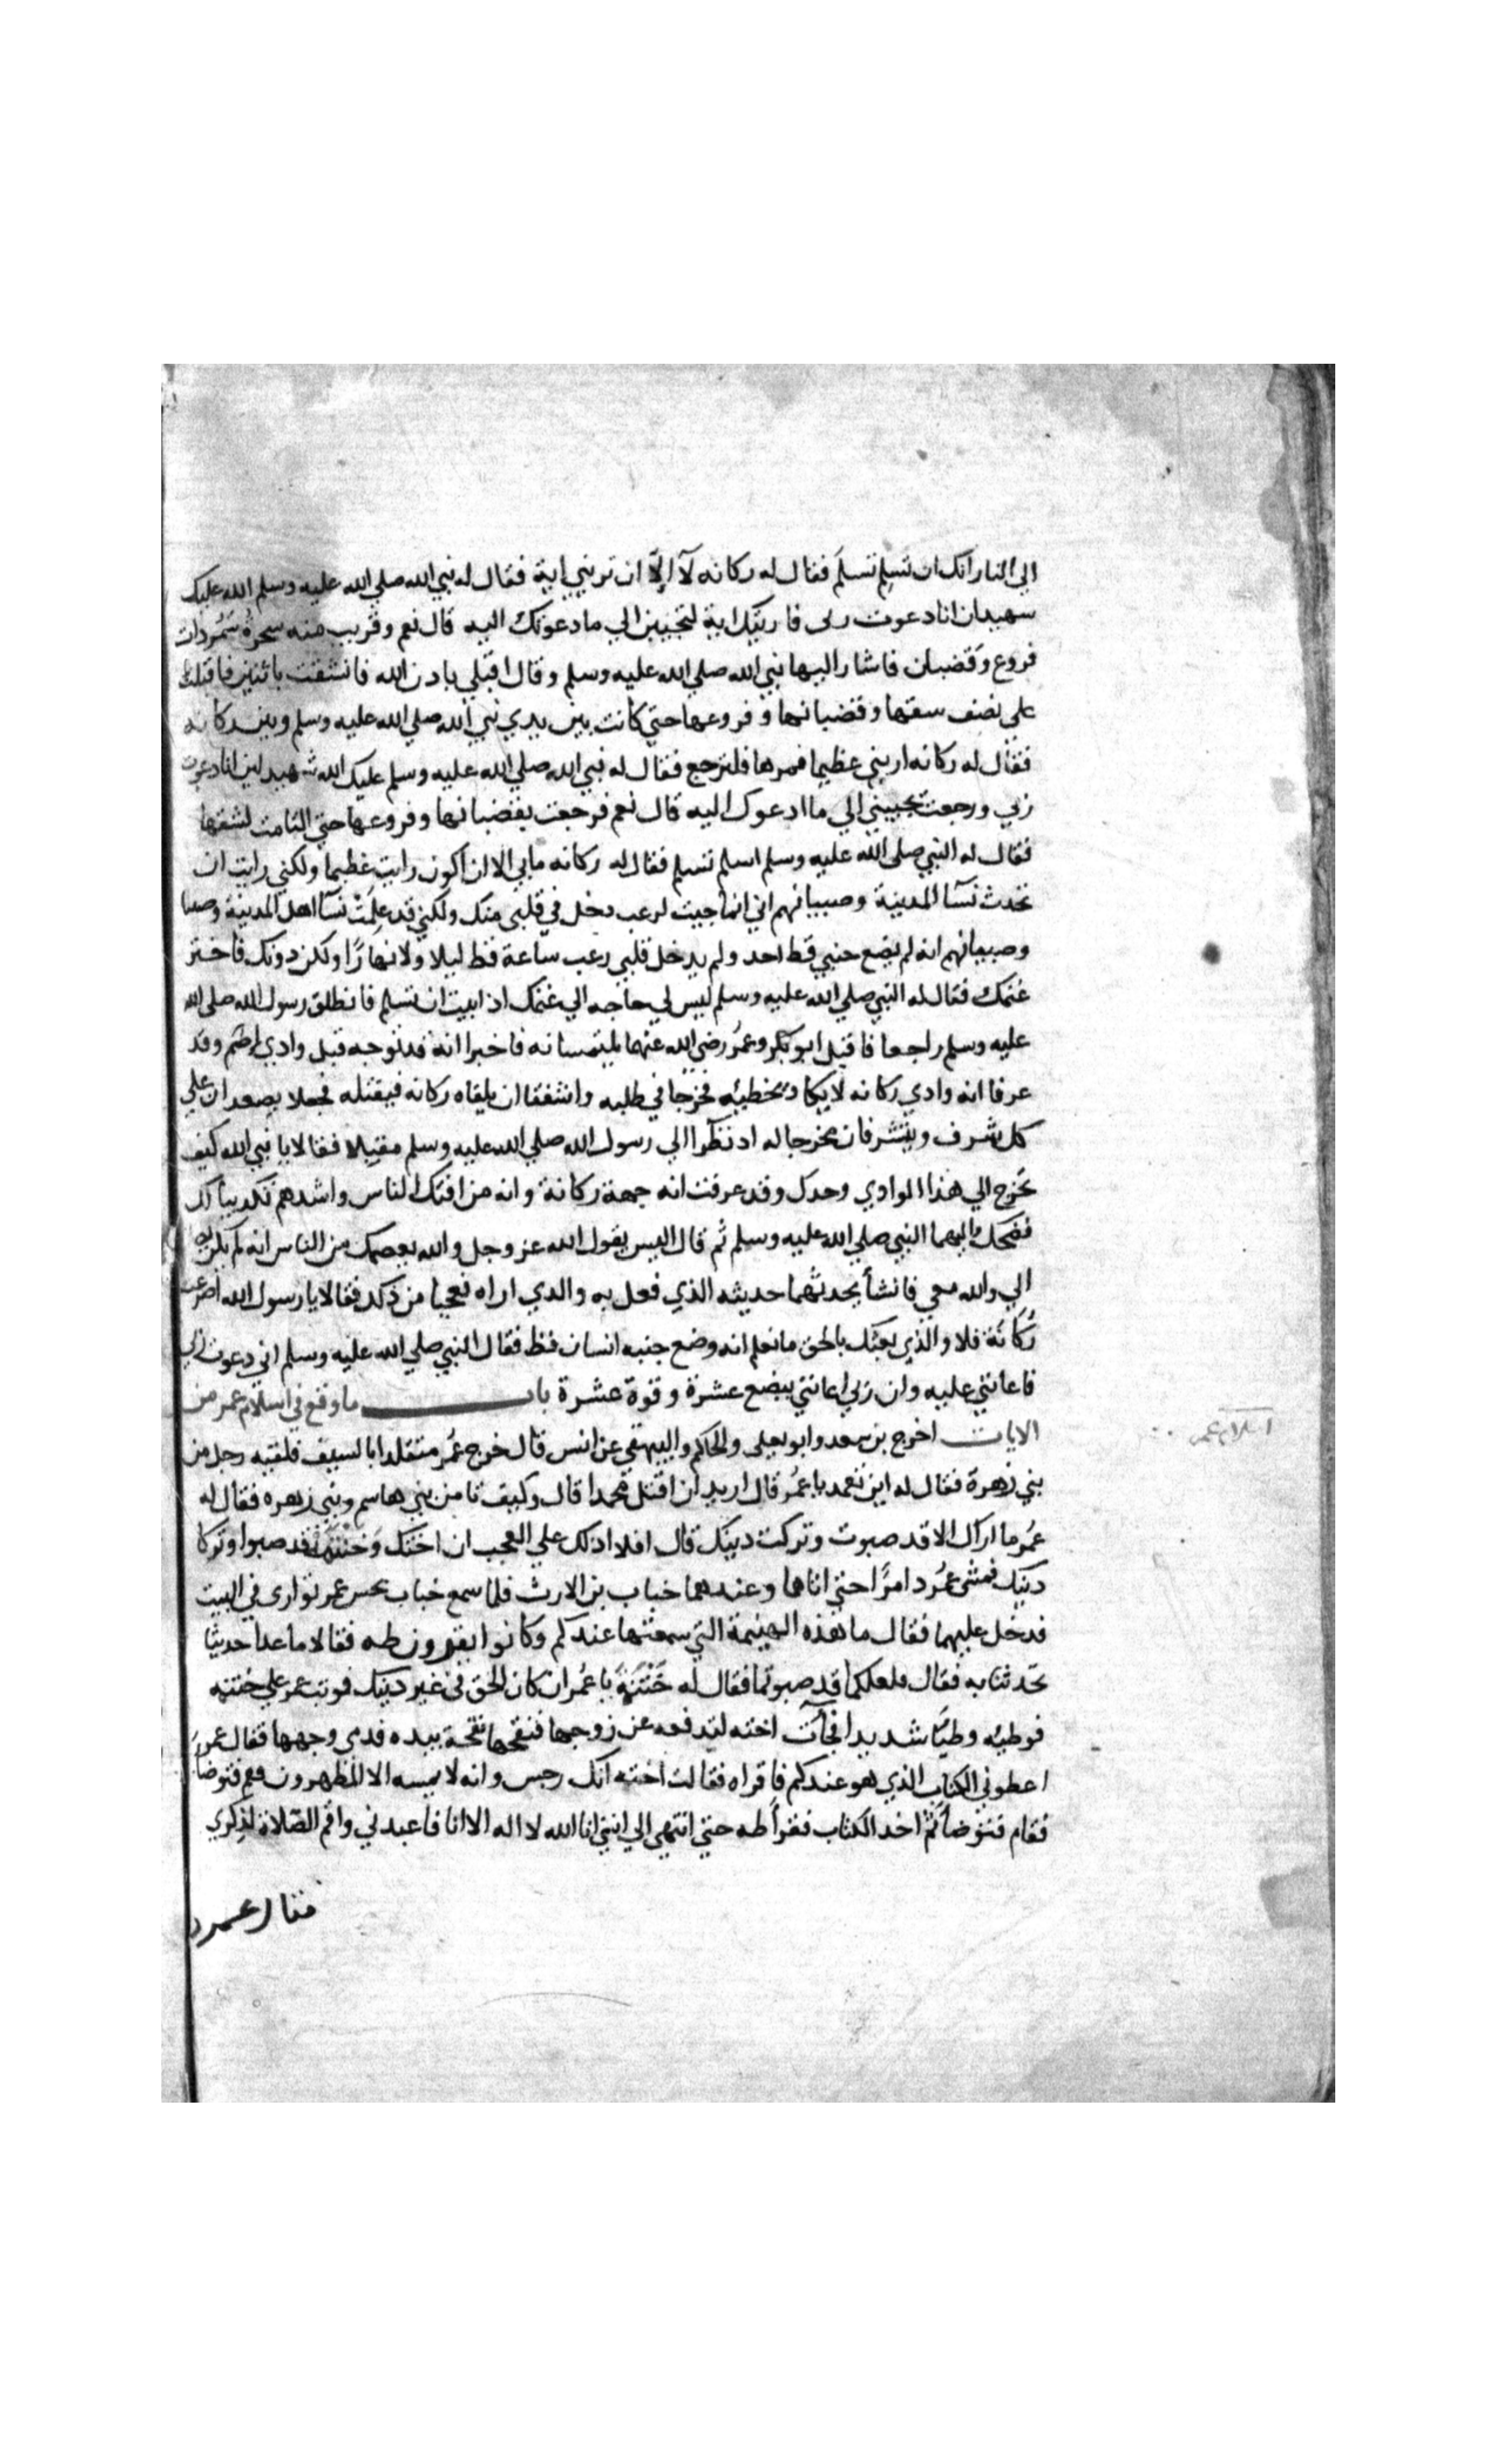 الي النار انك ان تسلم تسلم فقال له ركانه لا الا ان تريني اية فقال له نبي الله صلي الله عليه وسلم الله عليك
شهيد ان انا دعوت ربى فاريتك اية لتجيبن الي ما دعوتك اليه قال نعم وقريب منه شجرة سمر ذات
فروع وقضبان فاشار اليها نبي الله صلي الله عليه وسلم وقال اقبلي باذن الله فانشقت باثنين فاقبلت
علي نصف سقها وقضبانها وفروعها حتي كانت بين يدي نبي الله صلي الله عليه وسلم وبين ركانه
فقال له ركانه اريتني عظيما فمرها فلترجع فقال له نبي الله صلي الله عليه وسلم عليك الله شهيد لين انا دعوت
ربي ورجعت تجيبني الي ما ادعوك اليه قال نعم فرجعت بقضبانها وفروعها حتي التامت لشقها
فقال له النبي صلى الله عليه وسلم اسلم تسلم فقال له ركانه مابي الا ان اكون رايت عظيما ولكني رايت ان
تحدث نسآ المدينة وصبيانهم اني انما جيت لرعب دخل في قلبي منك ولكني قد علمت نسآ اهل المدينة وصبيا
وصبيانهم انه لم يضع جنبي قط احد ولم يدخل قلبي رعب ساعة قط ليلا ولا نهارا ولكن دونك فاختر
غنمك فقال له النبي صلي الله عليه وسلم ليس لي حاجه الي غنمك اذ ابيت ان تسلم فانطلق رسول الله صلى الله
عليه وسلم راجعا فاقبل ابو بكر وعمر رضي الله عنهما يلتمسانه فاخبرا انه قد توجه قبل وادي اضم وقد
عرفا انه وادي ركانه لا يكاد يخطيه فخرجا في طلبه واشفقا ان يلقاه ركانه فيقتله فجعلا يصعدان علي
كل شرف ويتشرفان مخرجا له اذ نظرا الي رسول الله صلي الله عليه وسلم مقبلا فقالا يا نبي الله كيف
تخرج الي هذا الوادي وحدك وقد عرفت انه جهة ركانة وانه من افتك الناس واشدهم تكديبا لك
فضحك اليهما النبي صلي الله عليه وسلم ثم قال اليس يقول الله عز وجل والله يعصمك من الناس انه لم يكن يصل
الي والله معي فانشأ يحدثهما حديثه الذي فعل به والدي اراه فعجبا من ذلك فقالا يا رسول الله اصرعت
ركانة فلا والذي بعثك بالحق ما نعلم انه وضع جنبه انسان قط فقال النبي صلي الله عليه وسلم اني دعوت ربي
فاعانني عليه وان ربي اعانني ببضع عشرة وقوة عشرة باب ما وقع في اسلام عمر من
الايات اخرج بن سعد وابو يعلى والحاكم والبيهقي عن انس قال خرج عمر متقلدا بالسيف فلقيه رجل من
بني زهرة فقال له اين تعمد يا عمر قال اريد ان اقتل محمدا قال وكيف تامن بني هاشم وبني زهره فقال له
عمر ما اراك الا قد صبوت وتركت دينك قال افلا ادلك علي العجب ان اختك وختنك قد صبوا وتركا
دينك فمشى عمر دامرا حتي اتاهما وعندهما خباب بن الارت فلما سمع خباب بحس عمر توارى في البيت
فدخل عليهما فقال ما هذه الهينمة التي سمعتها عندكم وكانوا يقرون طه فقالا ما عدا حديثا
تحدثنا به فقال فلعلكما قد صبوتما فقال له ختنه يا عمر ان كان الحق في غير دينك فوثب عمر علي ختنه
فوطيه وطيا شديدا فجآت اخته لتدفعه عن زوجها فنفحها نفحة بيده فدمى وجهها فقال عمر
اعطوني الكتاب الذي هو عندكم فاقراه فقالت اخته انك رجس وانه لا يمسه الا المطهرون فقم فتوضأ
فقام فتوضأ ثم اخد الكتاب فقرأ طه حتي انتهي الي انني انا الله لا اله الا انا فاعبدني واقم الصلاة لذكري
فقال عمر
اسلام عمر